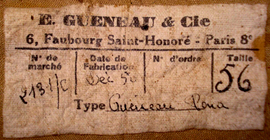 E. GUENEAU & Cie
6, Faubourg Saint-Honoré - Paris 8e
N° de marché Date de Fabrication N° d'ordre Taille
2131/C Dec 50 56
Type Gueneau